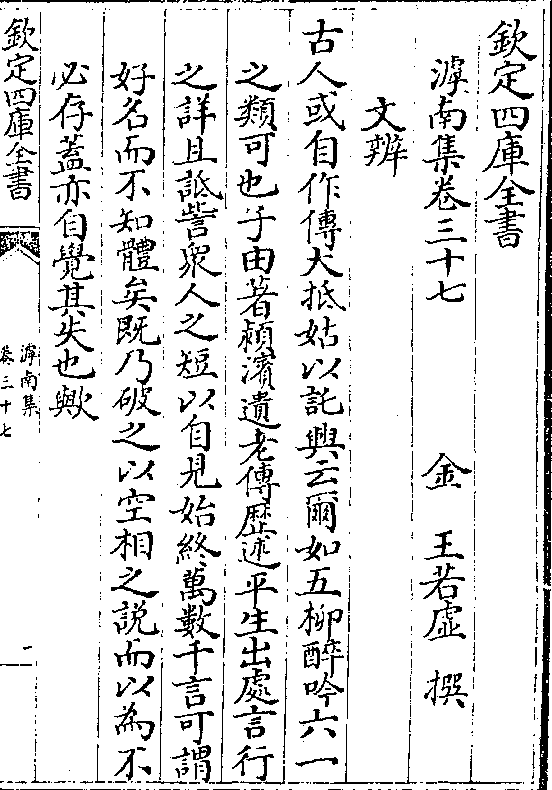 欽定四庫全書
滹南集卷三十七　　金　王若虛　撰
文辨
古人或自作傳大抵姑以託興云爾如五柳醉吟六一
之類可也子由著潁濱遺老傳歷述平生出處言行
之詳且詆訾衆人之短以自見始終萬數千言可謂
好名而不知體矣既乃破之以空相之説而以為不
必存蓋亦自覺其失也歟
欽定四庫全書
滹南集
卷三十七
一